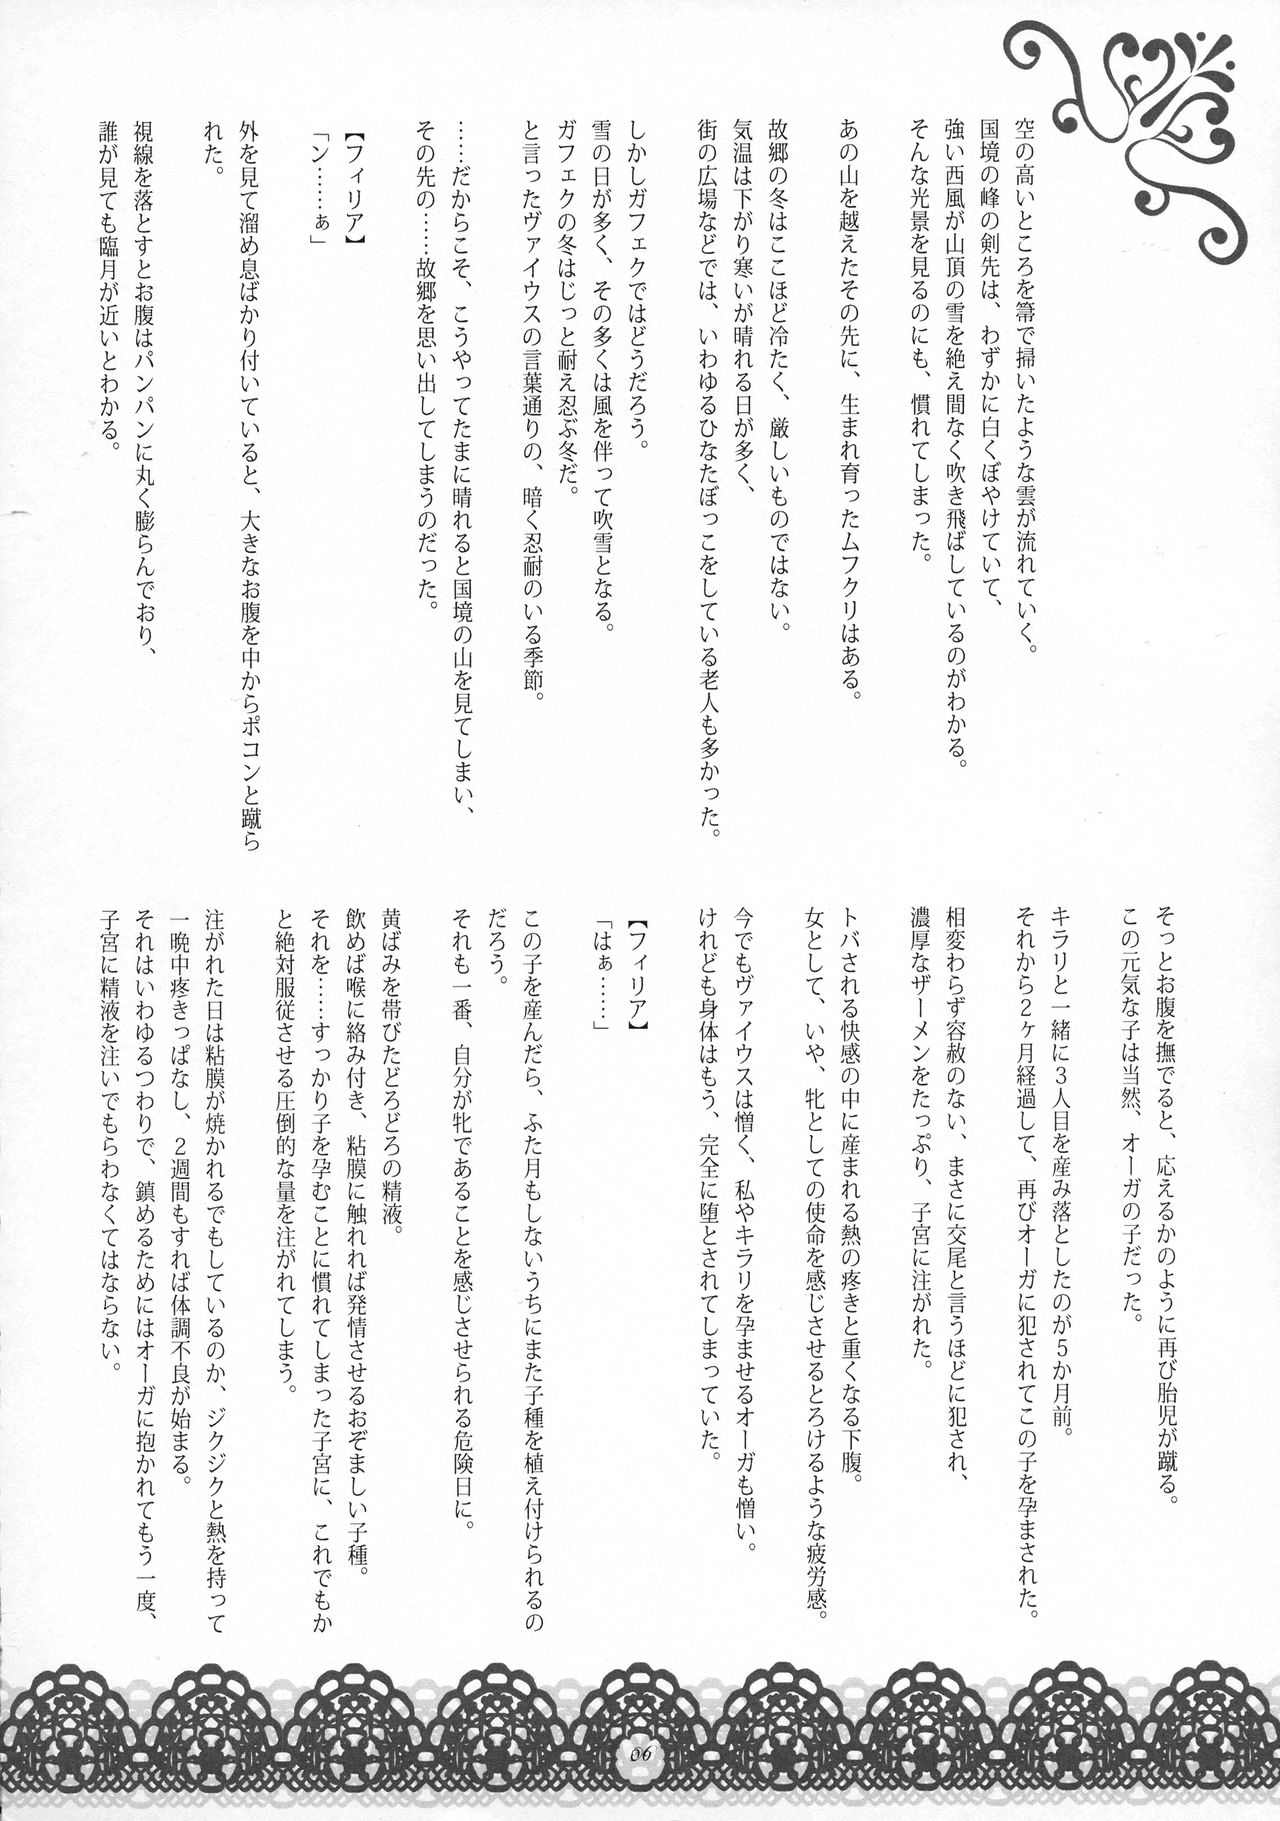 空の高いところを箒で掃いたような雲が流れていく。
国境の峰の剣先は、わずかに白くぼやけていて、
強い西風が山頂の雪を絶え間なく吹き飛ばしているのがわかる。
そんな光景を見るのにも、慣れてしまった。
あの山を越えたその先に、生まれ育ったムフクリはある。
故郷の冬はここほど冷たく、厳しいものではない。
気温は下がり寒いが晴れる日が多く、
街の広場などでは、いわゆるひなたぼっこをしている老人も多かった。
しかしガフェクではどうだろう。
雪の日が多く、その多くは風を伴って吹雪となる。
ガフェクの冬はじっと耐え忍ぶ冬だ。
と言ったヴァイウスの言葉通りの、暗く忍耐のいる季節。
……だからこそ、こうやってたまに晴れると国境の山を見てしまい、
その先の……故郷を思い出してしまうのだった。
【フィリア】
「ン……ぁ」
外を見て溜め息ばかり付いていると、大きなお腹を中からポコンと蹴ら
れた。
視線を落とすとお腹はパンパンに丸く膨らんでおり、
誰が見ても臨月が近いとわかる。
そっとお腹を撫でると、応えるかのように再び胎児が蹴る。
この元気な子は当然、オーガの子だった。
キラリと一緒に3人目を産み落としたのが5か月前。
それから2ヶ月経過して、再びオーガに犯されてこの子を孕まされた。
相変わらず容赦のない、まさに交尾と言うほどに犯され、
濃厚なザーメンをたっぷり、子宮に注がれた。
トバされる快感の中に産まれる熱の疼きと重くなる下腹。
女として、いや、牝としての使命を感じさせるとろけるような疲労感。
今でもヴァイウスは憎く、私やキラリを孕ませるオーガも憎い。
けれども身体はもう、完全に堕とされてしまっていた。
【フィリア】
「はぁ……」
この子を産んだら、ふた月もしないうちにまた子種を植え付けられるの
だろう。
それも一番、自分が牝であることを感じさせられる危険日に。
黄ばみを帯びたどろどろの精液。
飲めば喉に絡み付き、粘膜に触れれば発情させるおぞましい子種。
それを……すっかり子を孕むことに慣れてしまった子宮に、これでもか
と絶対服従させる圧倒的な量を注がれてしまう。
注がれた日は粘膜が焼かれるでもしているのか、ジクジクと熱を持って
一晩中疼きっぱなし、2週間もすれば体調不良が始まる。
それはいわゆるつわりで、鎮めるためにはオーガに抱かれてもう一度、
子宮に精液を注いでもらわなくてはならない。
06